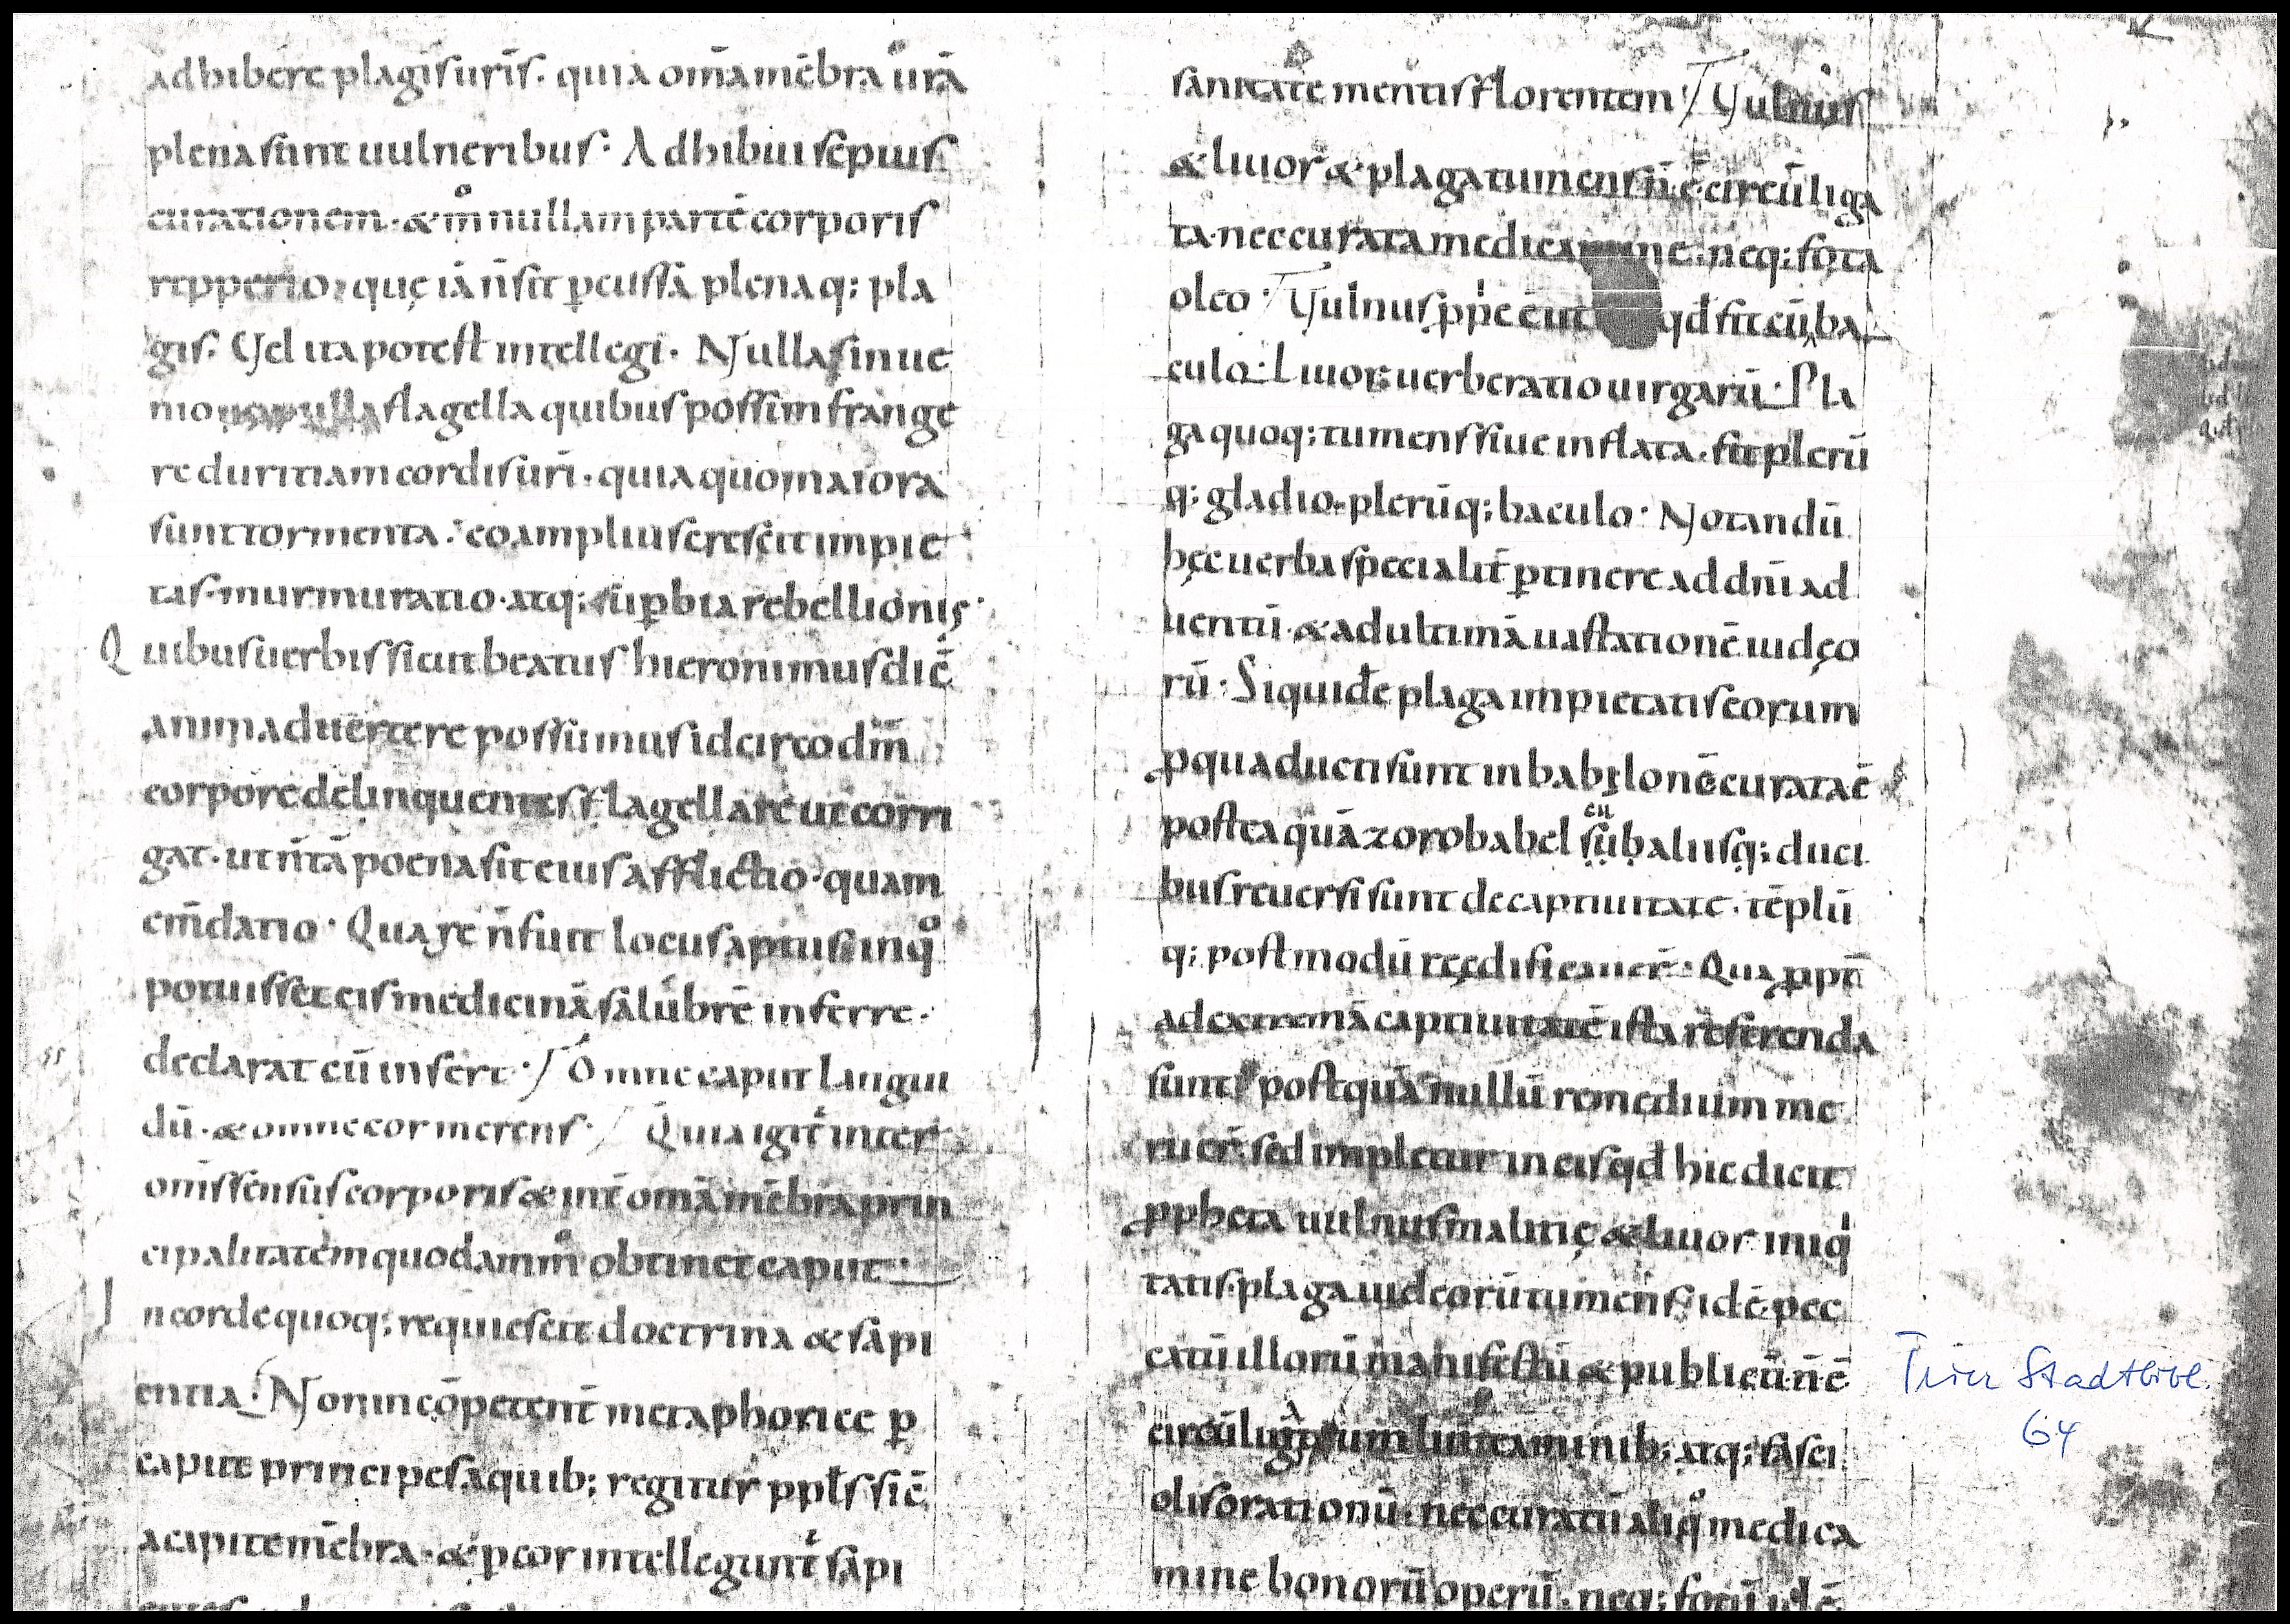 adhibere plagis uris̄. quia om̄a mēbra urā
plena sunt uulneribus. Adhibui sepius
curationem. & m̊ nullam partē corporis
repperio. quę iā n̄ sit ꝑcussa plenaq; pla
gis. Vel ita potest intellegi. Nulla sinue
nio flagella quibus possim frange
re duritiam cordis uri̅. quia quo maiora
sunt tormenta. eo amplius crescit impie
tas. murmuratio. atq; suꝑbia rebellionis.
Quibus uerbis sicut beatus hieronimus dic̄
animaduertere possumus idcirco dm̄
corpore delinquentes flagellare ut corri
gat. ut n̄ tā poena sit eius afflictio. quam
em̄datio. Quare n̄ fuit locus aptus in q̊
potuisset eis medicinā salubrē inferre.
declarat cū infert. Omne caput langui
dū. & omne cor merens. Quia igit̄ inter
om̄s sensus corporis & int̄ om̄a mēbra prin
cipalitatem quodamm̊ obtinet caput
In corde quoq; requiescit doctrina & sapi
entia. Non incōpetent̄ metaphorice ꝑ
capite principes a quib; regitur ppl̄s sic̄
a capite mēbra. & ꝑ cor intellegunt̄ sapi
sanitate mentis florentem. Vulnus
& liuor & plaga tumens n̄ ē circūliga
ta. nec curata medicamine. neq; fota
oleo. Vulnus ꝓp̍e ē ut qd̄ fit cū ba
culo. Liuor uerberatio uirgarū. Pla
ga quoq; tumens siue inflata. fit plerū
q; gladio. plerūq; baculo. Notandū
hęc uerba specialit̄ ꝑtinere ad dn̄i ad
uentū. & ad ultimā uastationē iudęo
rū. Siquidē plaga impietatis eorum
ꝓ qua ducti sunt in babilonē curata ē
posteaquā zorobabel cū sūbaliisq; duci
bus reuersi sunt de captiuitate. tēplū
q; postmodū reędificauer̄. Quaꝓpt̄
ad extremā captiuitatē ista referenda
sunt. postquā nullū remedium me
ruer̄. sed impletur in eis qd̄ hic dicit
ꝓpheta uulnus malitię & liuor iniq̍
tatis. plaga iudeorū tumens. idē pec
catū illorū manifestū & publicū n̄ ē
circūligatum ligaminib; atq; fasci
olis orationū. nec curatū aliq̊ medica
mine bonorū operū. neq; fotū idē
Trier Stadtbibl.
64